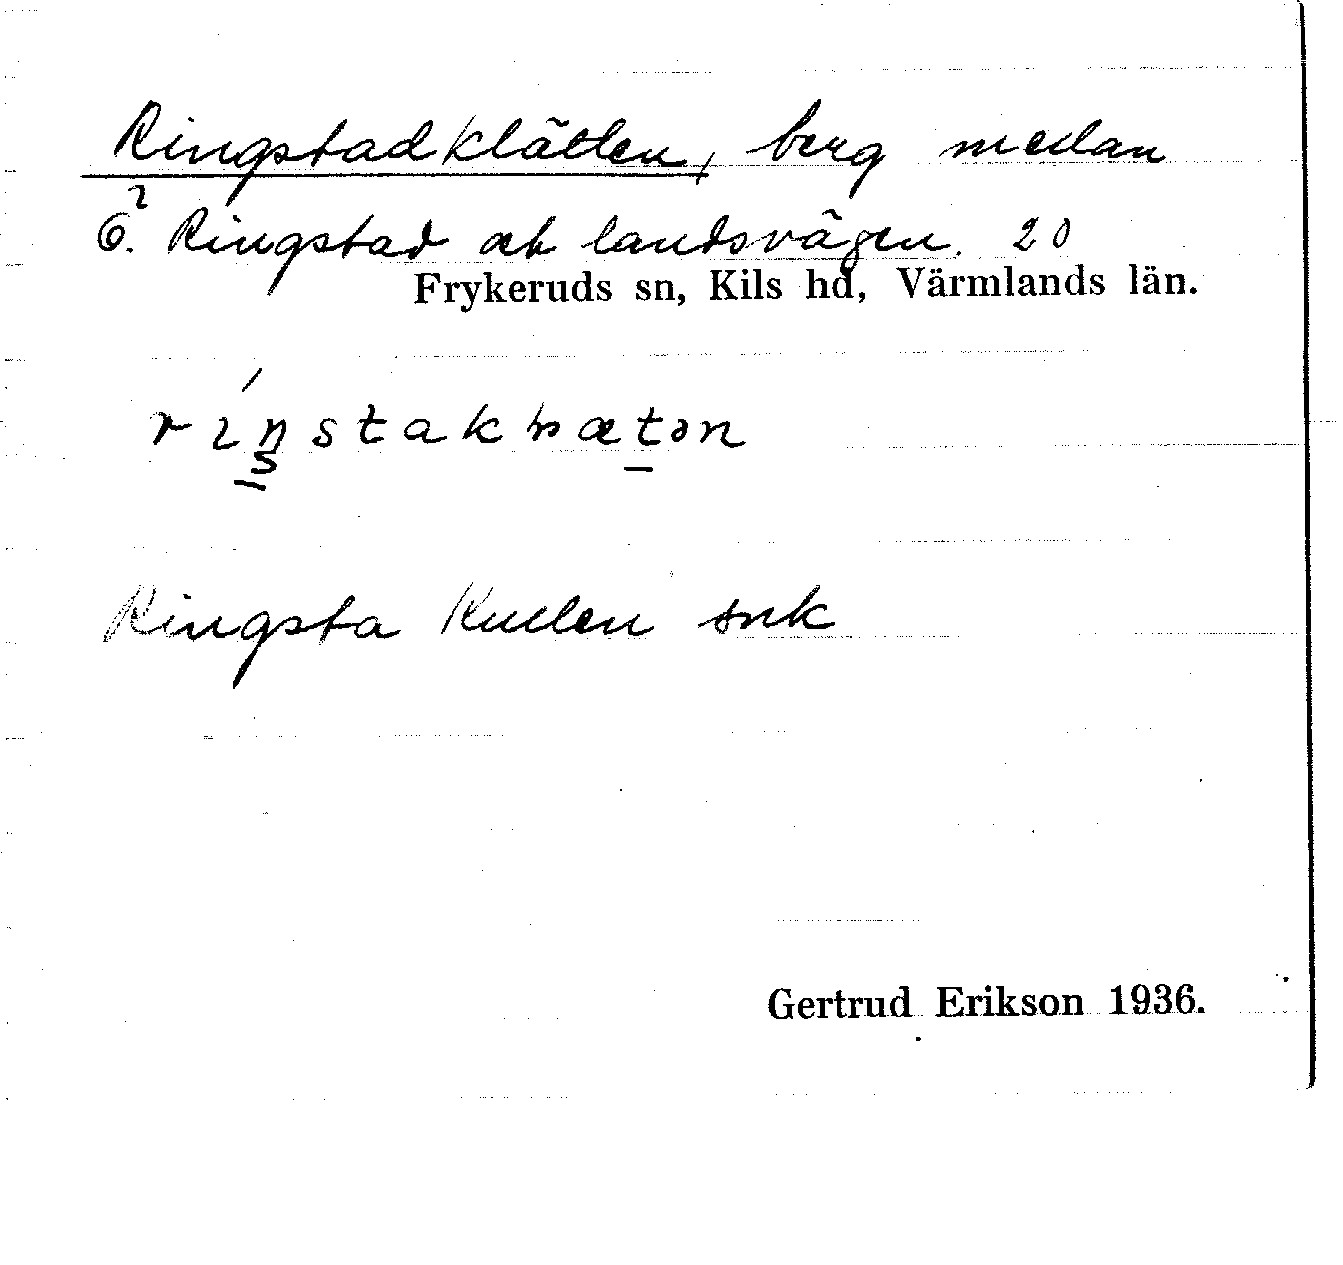 Ringstadklätten, berg mellan
Ö. Ringstad och landsvägen. 20
Frykeruds sn, Kils hd, Värmlands län.
Ringsta Kullen snk
Gertrud Erikson 1936.